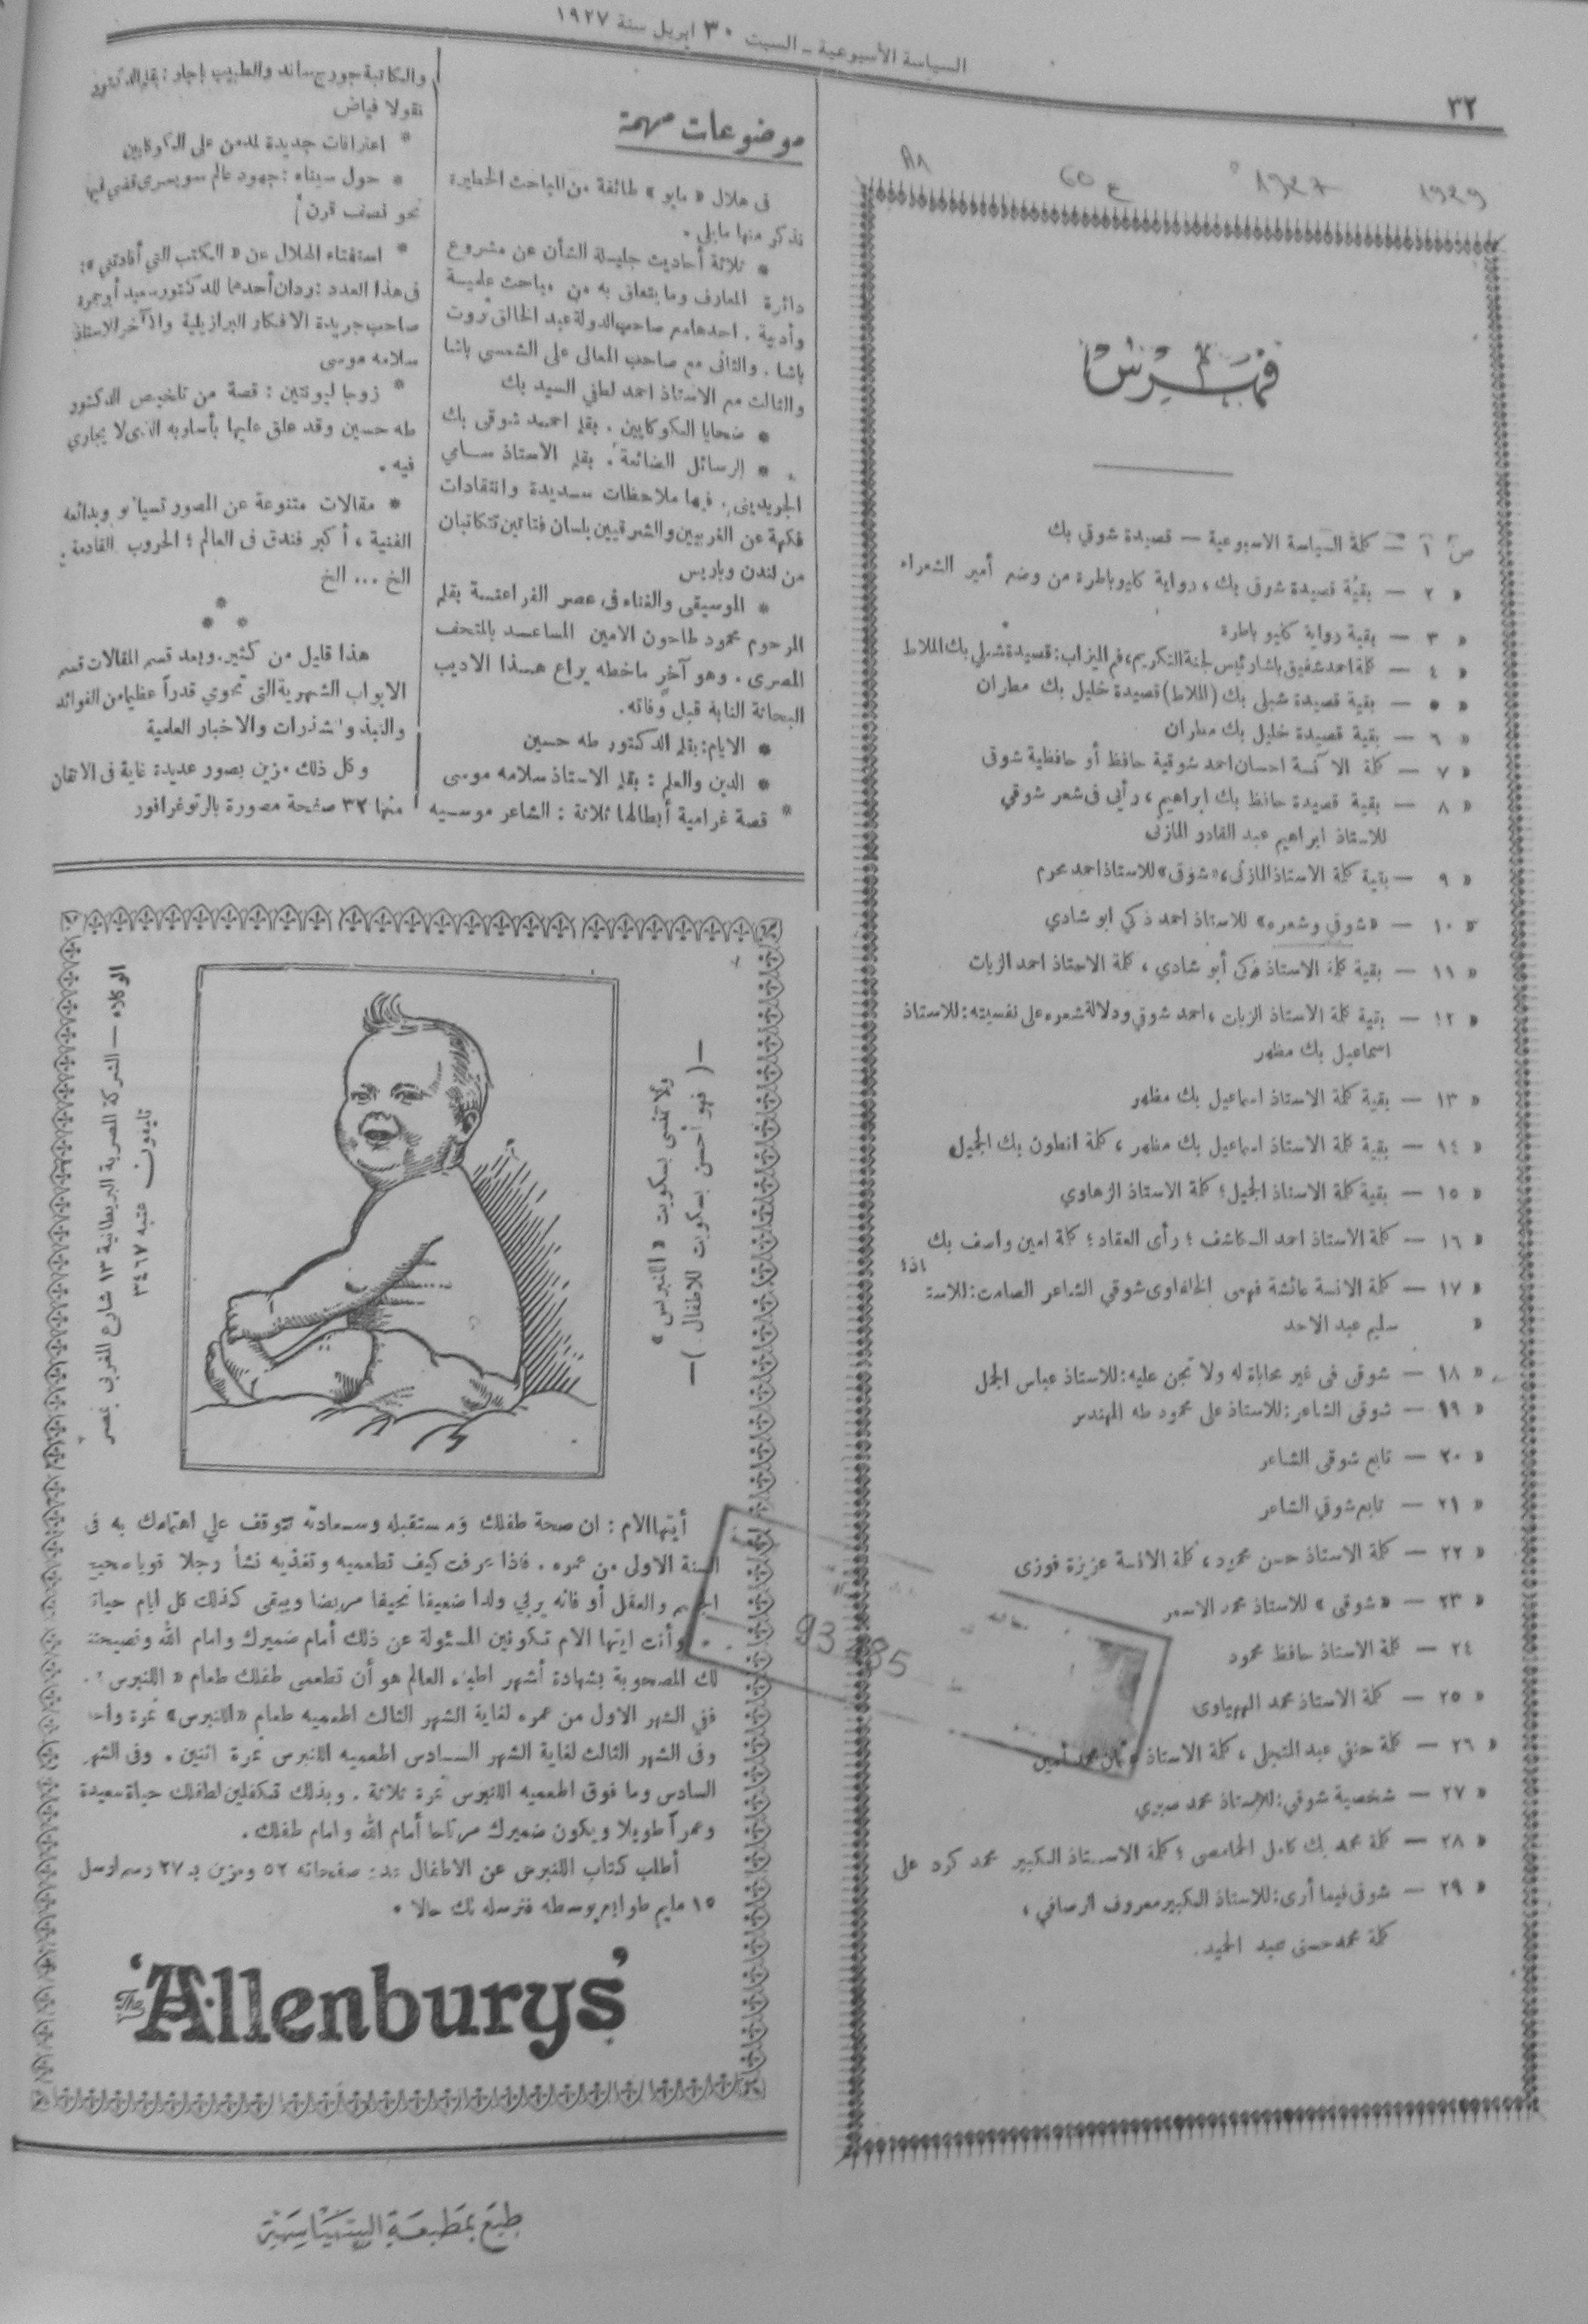 السياسة الأسبوعية ـ السبت ٣٠ ابريل سنة ١٩٢٧
٣٢
1929
1927
فهرس
ص ١ — كلمة السياسة الاسبوعية — قصيدة شوقي بك
« ٢ — بقية قصيدة شوقى بك ، رواية كليوباطرة من وضع أمير الشعراء
« ٣ — بقية رواية كليوباطرة
« ٤ — كلمة احمد شفيق باشا رئيس لجنة التكريم، فم الميزاب: قصيدة شبلي بك الملاط
« ٥ — بقية قصيدة شبلى بك (الملاط) قصيدة خليل بك مطران
« ٦ — بقية قصيدة خليل بك مطران
« ٧ — كلمة الآنسة احسان احمد شوقية حافظ أو حافظية شوقى
« ٨ — بقية قصيدة حافظ بك ابراهيم ، رأيى فى شعر شوقي
للاستاذ ابراهيم عبد القادر المازنى
« ٩ — بقية كلمة الاستاذ المازنى، «شوقى» للاستاذ احمد محرم
« ١٠ — «شوقي وشعره» للاستاذ احمد زكي ابو شادي
« ١١ — بقية كلمة الاستاذ زكى أبو شادي ، كلمة الاستاذ احمد الزيات
« ١٢ — بقية كلمة الاستاذ الزيات ، احمد شوقي ودلالة شعره على نفسيته: للاستاذ
اسماعيل بك مظهر
« ١٣ — بقية كلمة الاستاذ اسماعيل بك مظهر
« ١٤ — بقية كلمة الاستاذ اسماعيل بك مظهر ، كلمة انطون بك الجميل
« ١٥ — بقية كلمة الاستاذ الجميل ؛ كلمة الاستاذ الزهاوي
« ١٦ — كلمة الاستاذ احمد الكاشف ؛ رأى العقاد ؛ كلمة امين واصف بك
« ١٧ — كلمة الانسة عائشة فهمى الخلفاوى شوقي الشاعر الصامت: للاستاذ
« سليم عبد الاحد
« ١٨ — شوقى فى غير محاباة له ولا تجن عليه: للاستاذ عباس الجمل
« ١٩ — شوقى الشاعر: للاستاذ على محمود طه المهندس
« ٢٠ — تابع شوقى الشاعر
« ٢١ — تابع شوقي الشاعر
« ٢٢ — كلمة الاستاذ حسن محمود ، كلمة الانسة عزيزة فوزى
« ٢٣ — «شوقى» للاستاذ محمد الاسمر
٢٤ — كلمة الاستاذ حافظ محمود
« ٢٥ — كلمة الاستاذ محمد الههياوى
« ٢٦ — كلمة حنفي عبد المتجلى ، كلمة الاستاذ محمد أمين
« ٢٧ — شخصية شوقي: للاستاذ محمد صبري
« ٢٨ — كلمة محمد بك كامل ؛ كلمة الاستاذ الكبير محمد كرد على
« ٢٩ — شوقى فيما أرى: للاستاذ الكبير معروف الرصافي ،
كلمة محمد حسنى عبد الحميد.
موضوعات مهمة
فى هلال « مايو » طائفة من المباحث الخطيرة
نذكر منها مايلى .
* ثلاثة أحاديث جليلة الشأن عن مشروع
دائرة المعارف وما يتعلق به من مباحث علمية
وأدبية . احدها مع صاحب الدولة عبد الخالق ثروت
باشا . والثانى مع صاحب المعالى على الشمسي باشا
والثالث مع الاستاذ احمد لطفي السيد بك
* ضحايا الكوكايين . بقلم احمد شوقى بك
* الرسائل الضائعة . بقلم الاستاذ سامي
الجريديني . فيها ملاحظات سديدة وانتقادات
فكهة عن الغربيين والشرقيين بلسان فتاتين تتكاتبان
من لندن وباريس
* الموسيقى والغناء فى عصر الفراعنة بقلم
المرحوم محمود طاحون الامين المساعد بالمتحف
المصرى . وهو آخر ماخطه يراع هذا الاديب
البحاثة النابه قبل وفاته.
* الايام: بقلم الدكتور طه حسين
* الدين والعلم : بقلم الاستاذ سلامه موسى
* قصة غرامية أبطالها ثلاثة : الشاعر موسيه
والكاتبة جورج ساند والطبيب باجلو : بقلم الدكتور
نقولا فياض
* اعترافات جديدة لمدمن على الكوكايين
* حول سيناء : جهود عالم سويسرى قضي فيها
نحو نصف قرن
* استفتاء الهلال عن « الكتب التي أفادتني » :
فى هذا العدد : ردان أحدهما للدكتور سعيد أبو جمره
صاحب جريدة الافكار البرازيلية والآخر للاستاذ
سلامه موسى
* زوجا ليونتين : قصة من تلخيص الدكتور
طه حسين وقد علق عليها بأسلوبه الذى لا يجارى
فيه .
* مقالات متنوعة عن المصور تسيانو وبدائعه
الفنية ، أكبر فندق فى العالم ؛ الحروب القادمة .
الخ ... الخ
* * *
هذا قليل من كثير. وبعد قسم المقالات قسم
الابواب الشهرية التى تحوي قدراً عظيما من الفوائد
والنبذ والشذرات والاخبار العلمية
وكل ذلك مزين بصور عديدة غاية فى الاتقان
منها ٣٢ صفحة مصورة بالرتوغرافور
—( فهو أحسن بسكويت للاطفال )—
ولا تنسى بسكويت « اللنبرس »
الوكلاء — الشركة المصرية البريطانية ١٣ شارع المغربى بمصر
تليفون عتبه ٣٤٦٧
أيتها الام : ان صحة طفلك ومستقبله وسعادته تتوقف علي اهتمامك به فى
السنة الاولى من عمره . فاذا عرفت كيف تطعميه وتغذيه نشأ رجلا قويا صحيح
الجسم والعقل أو فانه يربي ولدا ضعيفا نحيفا مريضا ويبقى كذلك كل ايام حياته
وأنت ايتها الام تكونين المسئولة عن ذلك أمام ضميرك وامام الله ونصيحتنا
لك المصحوبة بشهادة أشهر اطباء العالم هو أن تطعمى طفلك طعام « اللنبرس » .
ففي الشهر الاول من عمره لغاية الشهر الثالث اطعميه طعام «اللنبرس» نمرة واحد
وفى الشهر الثالث لغاية الشهر السادس اطعميه اللنبرس نمرة اثنين . وفى الشهر
السادس وما فوق اطعميه اللنبرس نمرة ثلاثة . وبذلك تكفلين لطفلك حياة سعيدة
وعمراً طويلا ويكون ضميرك مرتاحا أمام الله وامام طفلك .
أطلب كتاب اللنبرس عن الاطفال صفحاته ٥٢ ومزين بـ ٢٧ رسم
١٥ مليم طوابع بوسطه فنرسله لك حالا .
93 85
The 'Allenburys'
طبع بمطبعة السياسة